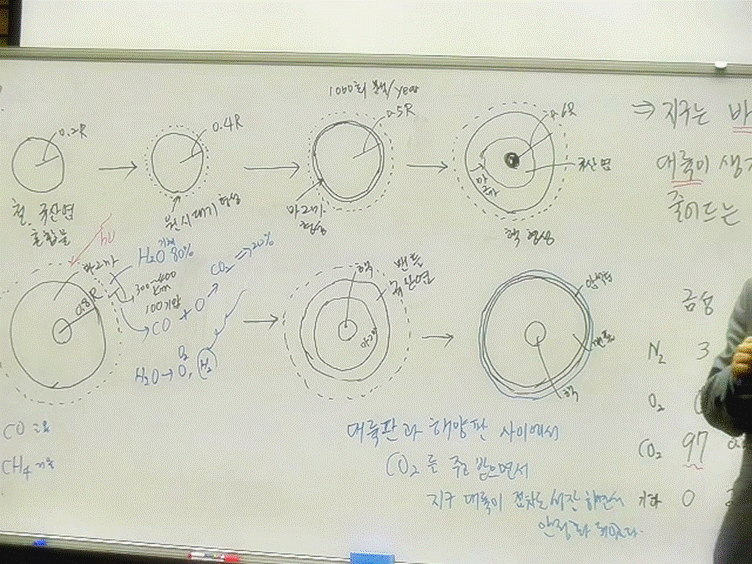 1000회 분석/year
0.2R
0.4R
0.5R
0.6R
철, 규산염
혼합물
원시대기 형성
마그마
형성
마그마
규산염
핵 형성
⇒ 지구는 바
대륙이 생기
줄어드는
hν
마그마
0.8R
기체
H₂O 80%
300~400
km
100기압
CO + O
CO₂ ⇒ 20%
H₂O → O, H₂
O₂
핵
맨틀
규산염
맨틀
핵
CO
CH₄
대륙판과 해양판 사이에서
CO₂를 주고 받으면서
지구 대륙이 점차로 성장하면서
안정화 되었다.
금성
N₂ 3
O₂
CO₂ 97
기타 0